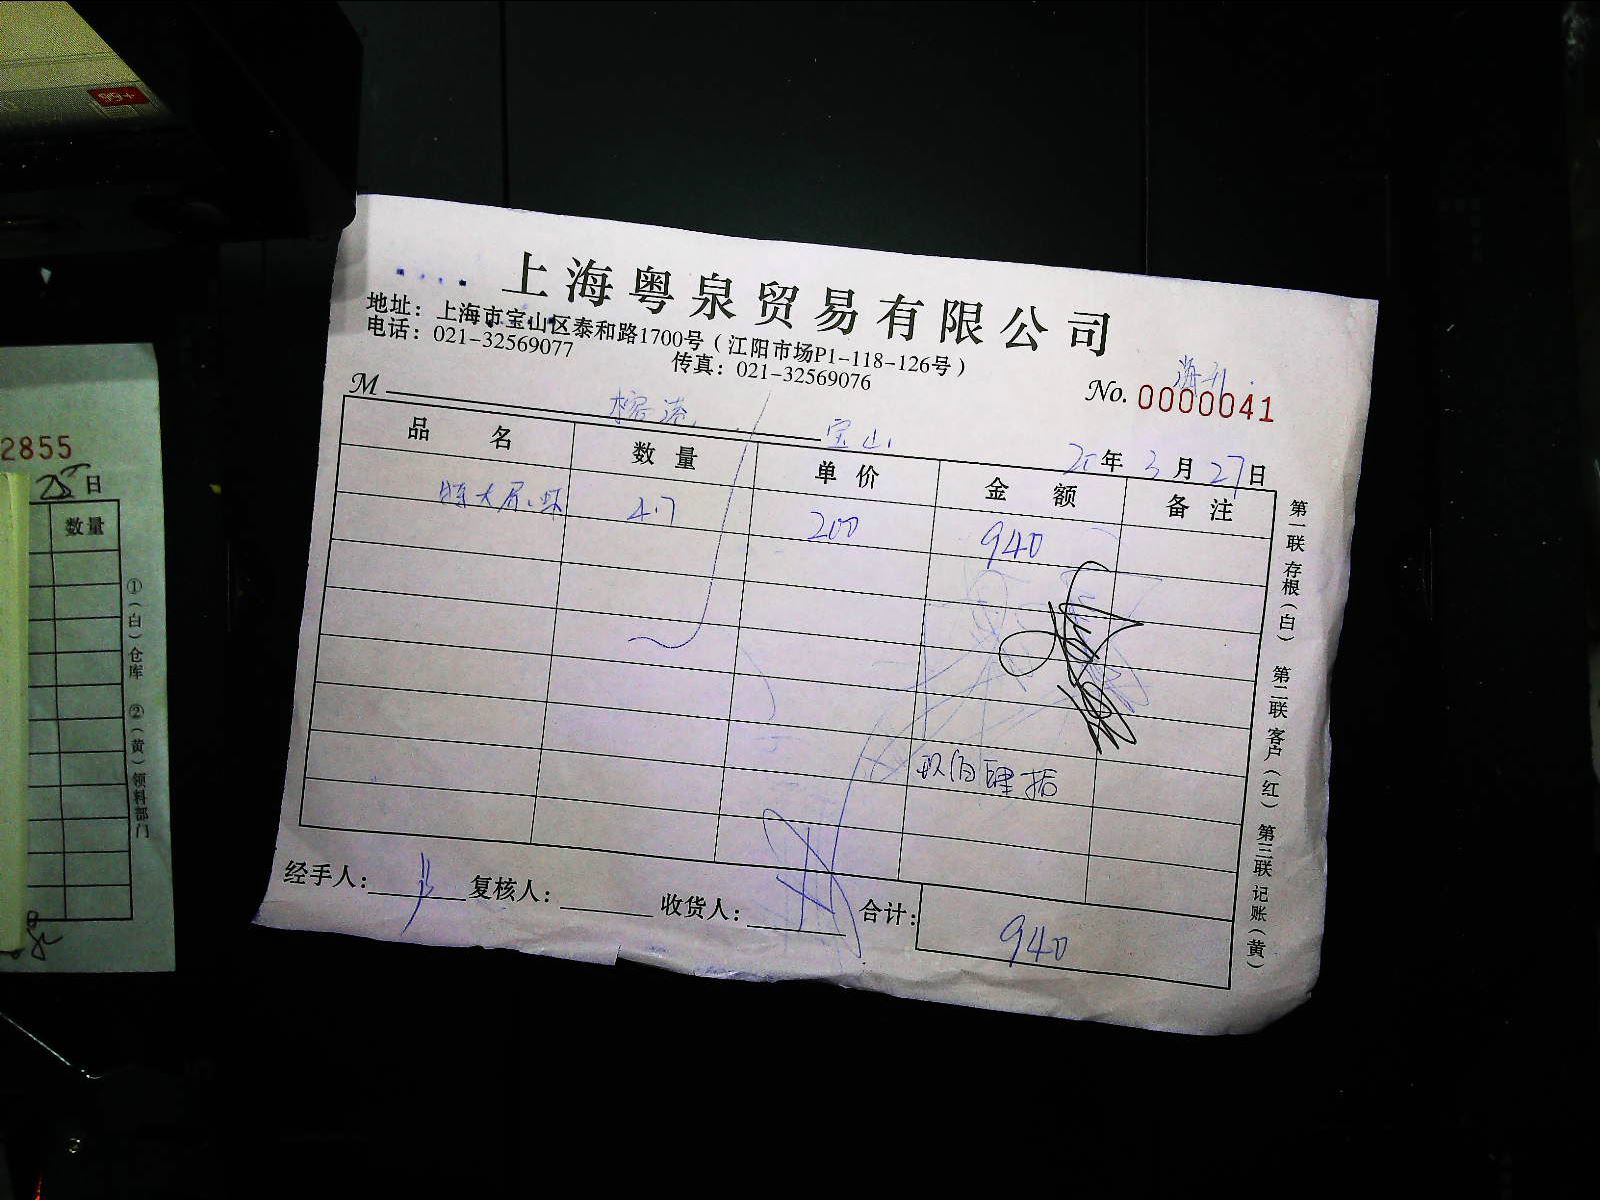 上海粤泉贸易有限公司
地址：上海市宝山区泰和路1700号（江阳市场P1-118-126号）
电话：021-32569077 传真：021-32569076
No. 0000041
M 榕港 宝山
年 3 月 27 日
品名 数量 单价 金额 备注
4.7 200 940
玖佰肆拾
经手人： 复核人： 收货人： 合计： 940
第一联 存根（白） 第二联 客户（红） 第三联 记账（黄）
2855
25日
数量
①（白）仓库 ②（黄）领料部门